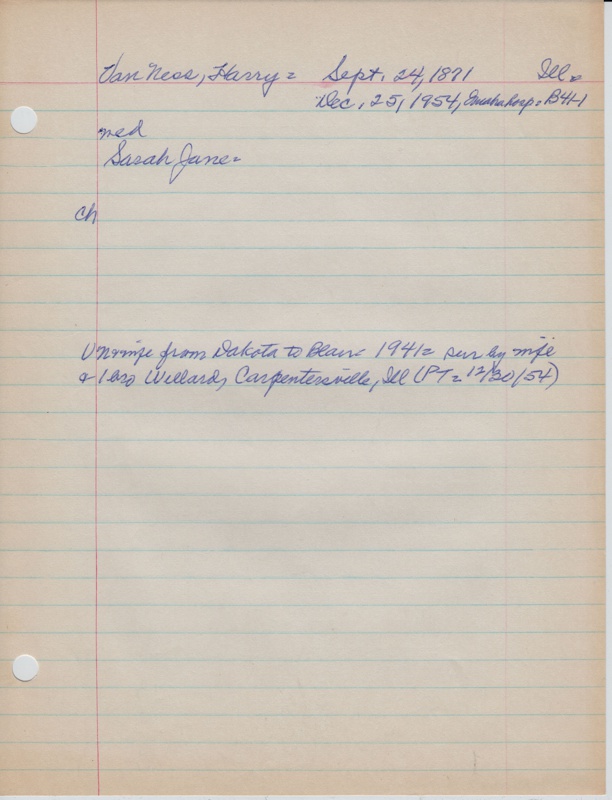 Van Ness, Harry = Sept. 24, 1871 Ill =
Dec, 25, 1954, Omaha hosp = B4H-1
med
Sarah Jane =
ch
V N & wife from Dakota to Blair = 1941 = sur by wife
& 1 bro Willard, Carpentersville, Ill (PT = 12/30/54)